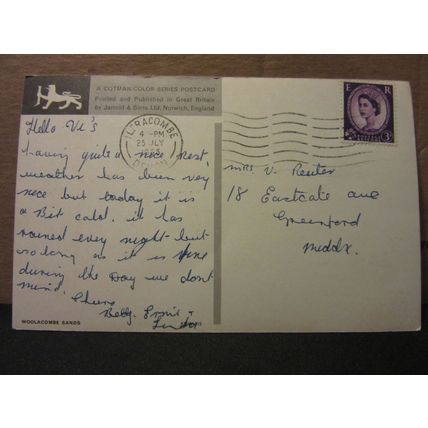 A COTMAN-COLOR SERIES POSTCARD
Printed and Published in Great Britain
by Jarrold & Sons Ltd, Norwich, England
Hello Vi's
having quite a nice rest,
weather has been very
nice but today it is
a Bit cold. it has
rained every night but
so long as it is fine
during the Day we dont
mind. Cheers
Betty. Ernie +
WOOLACOMBE SANDS
ILFRACOMBE
4 - PM
25 JLY
DEVON
E R
3D
Mrs V. Reuter
18 Eastcate ave
Greenford
Middx.